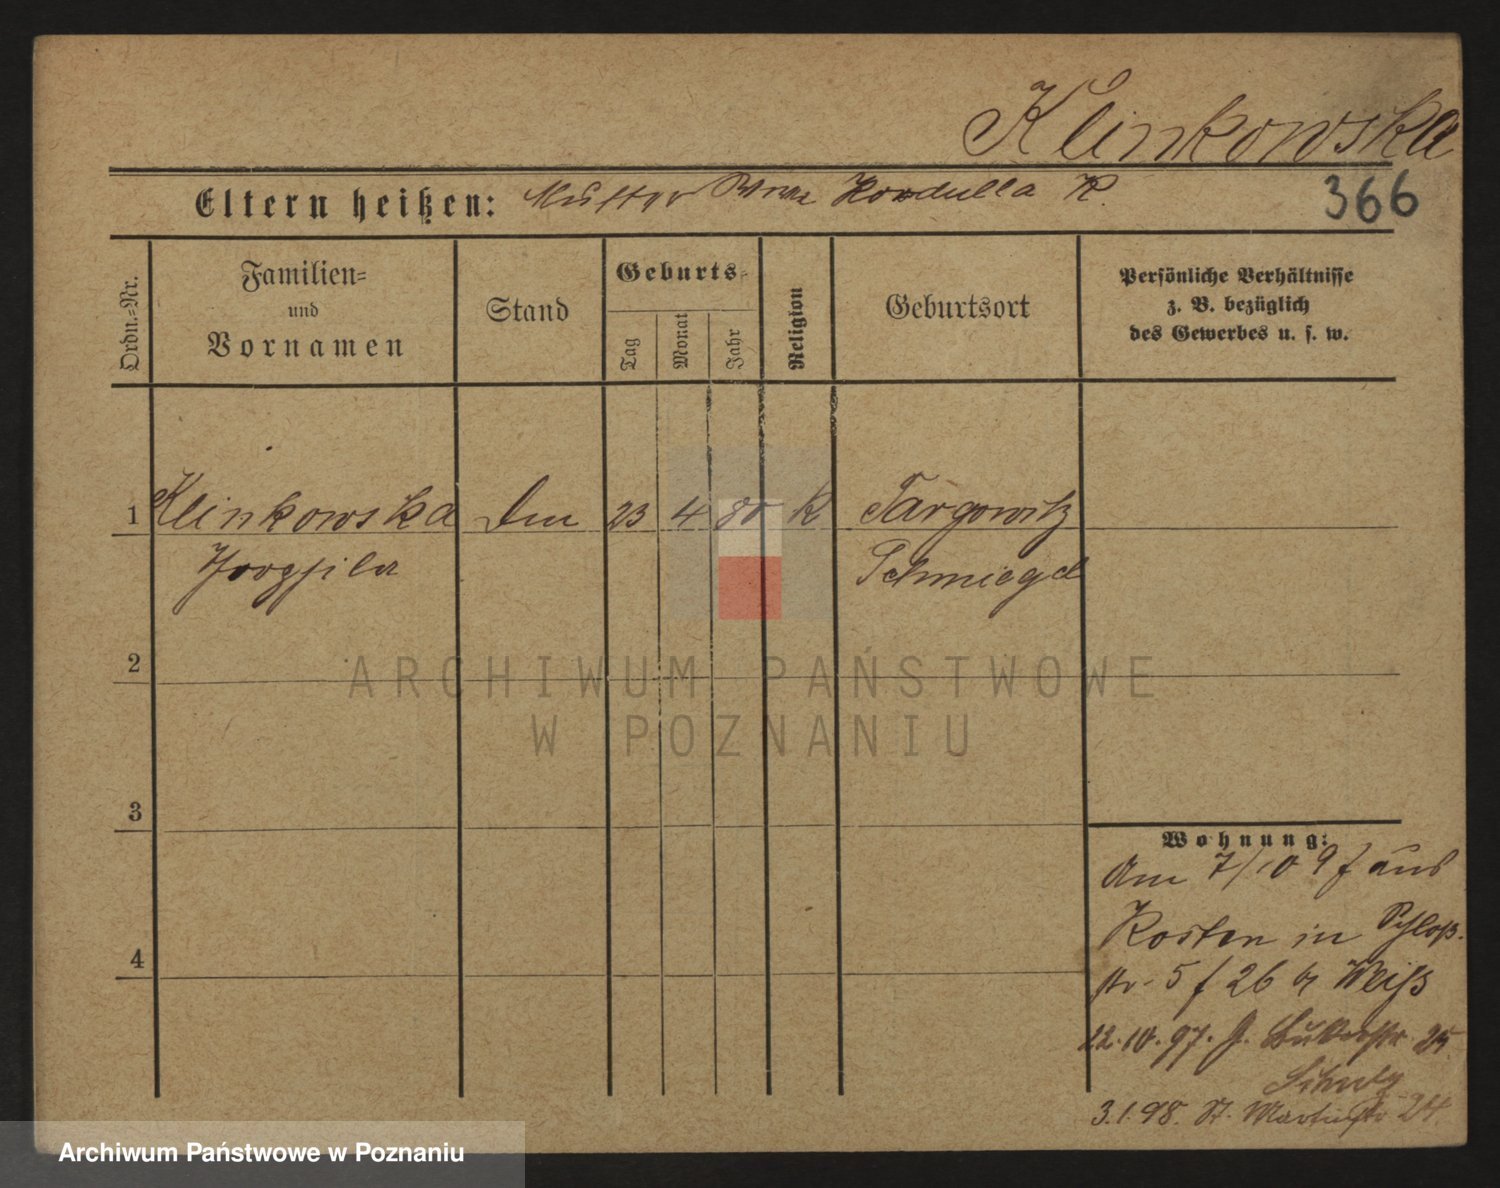 Klinkowska
Eltern heißen: Mutter Kordulla K.
366
Ordn.-Nr.
Familien-
und
Vornamen
Stand
Geburts-
Tag
Monat
Jahr
Religion
Geburtsort
Persönliche Verhältnisse
z. B. bezüglich
des Gewerbes u. s. w.
1 Klinkowska 23 4 80 K Targowitz
Schmiegel
2
ARCHIWUM PAŃSTWOWE
W POZNANIU
3
Wohnung:
Am 7/10 97 aus
Kosten in Schloß-
str. 5 f 26 b Weiß
22.10.97. G. 25
Schulz
3.1.98. St. Martinstr 24
4
Archiwum Państwowe w Poznaniu